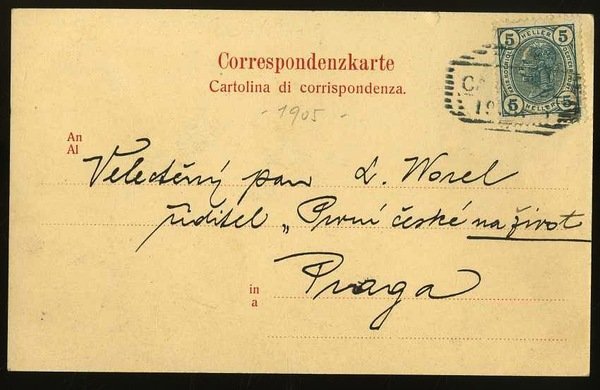 Correspondenzkarte
Cartolina di corrispondenza.
- 1905 -
5 HELLER 5
5 HELLER 5
An
Al
Velectěný pan L. Worel
řiditel „První české na život
in
a
Praga